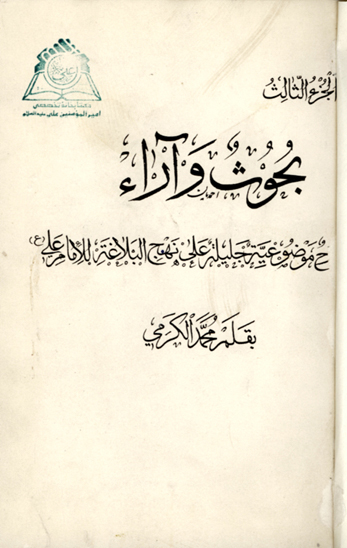 الجزء الثالث
كتابخانه تخصصي
أمير المؤمنين علي عليه السلام
بحوث وآراء
ح موضوعية جليلة على نهج البلاغة للإمام علي (ع)
بقلم محمد الكرمي